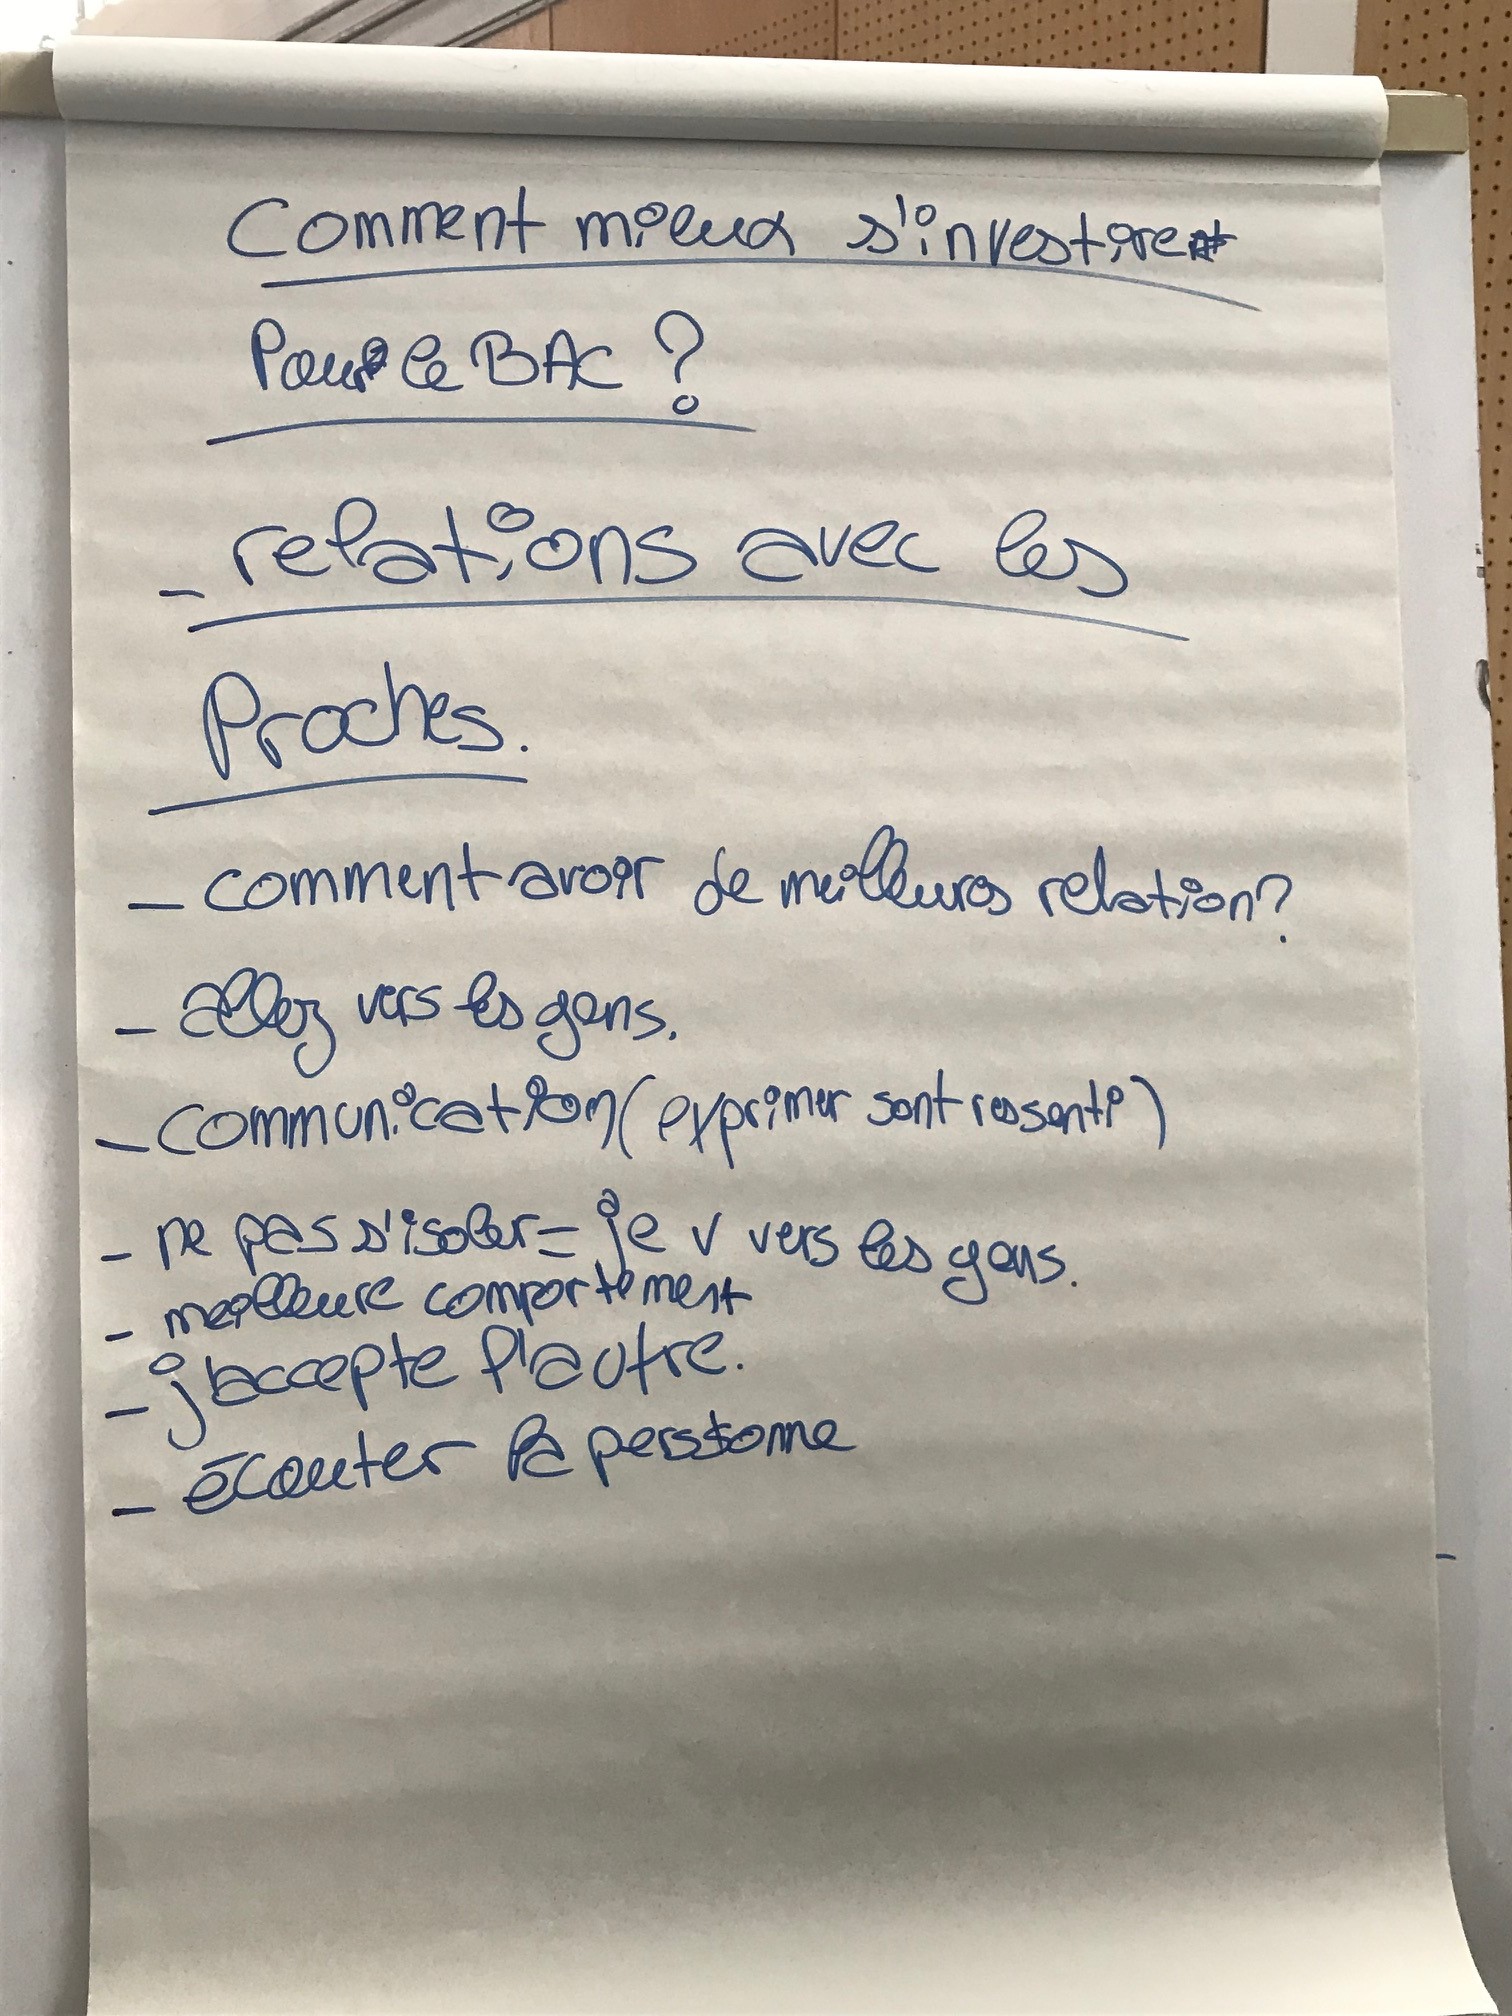 Comment mieux s'investire
Pour le BAC ?
- relations avec les
Proches.
- comment avoir de meilleures relation ?
- allez vers les gens.
- communication (exprimer sont ressenti)
- ne pas s'isoler = je v vers les gens.
- meilleure comportement
- j'accepte l'autre.
- écouter la personne